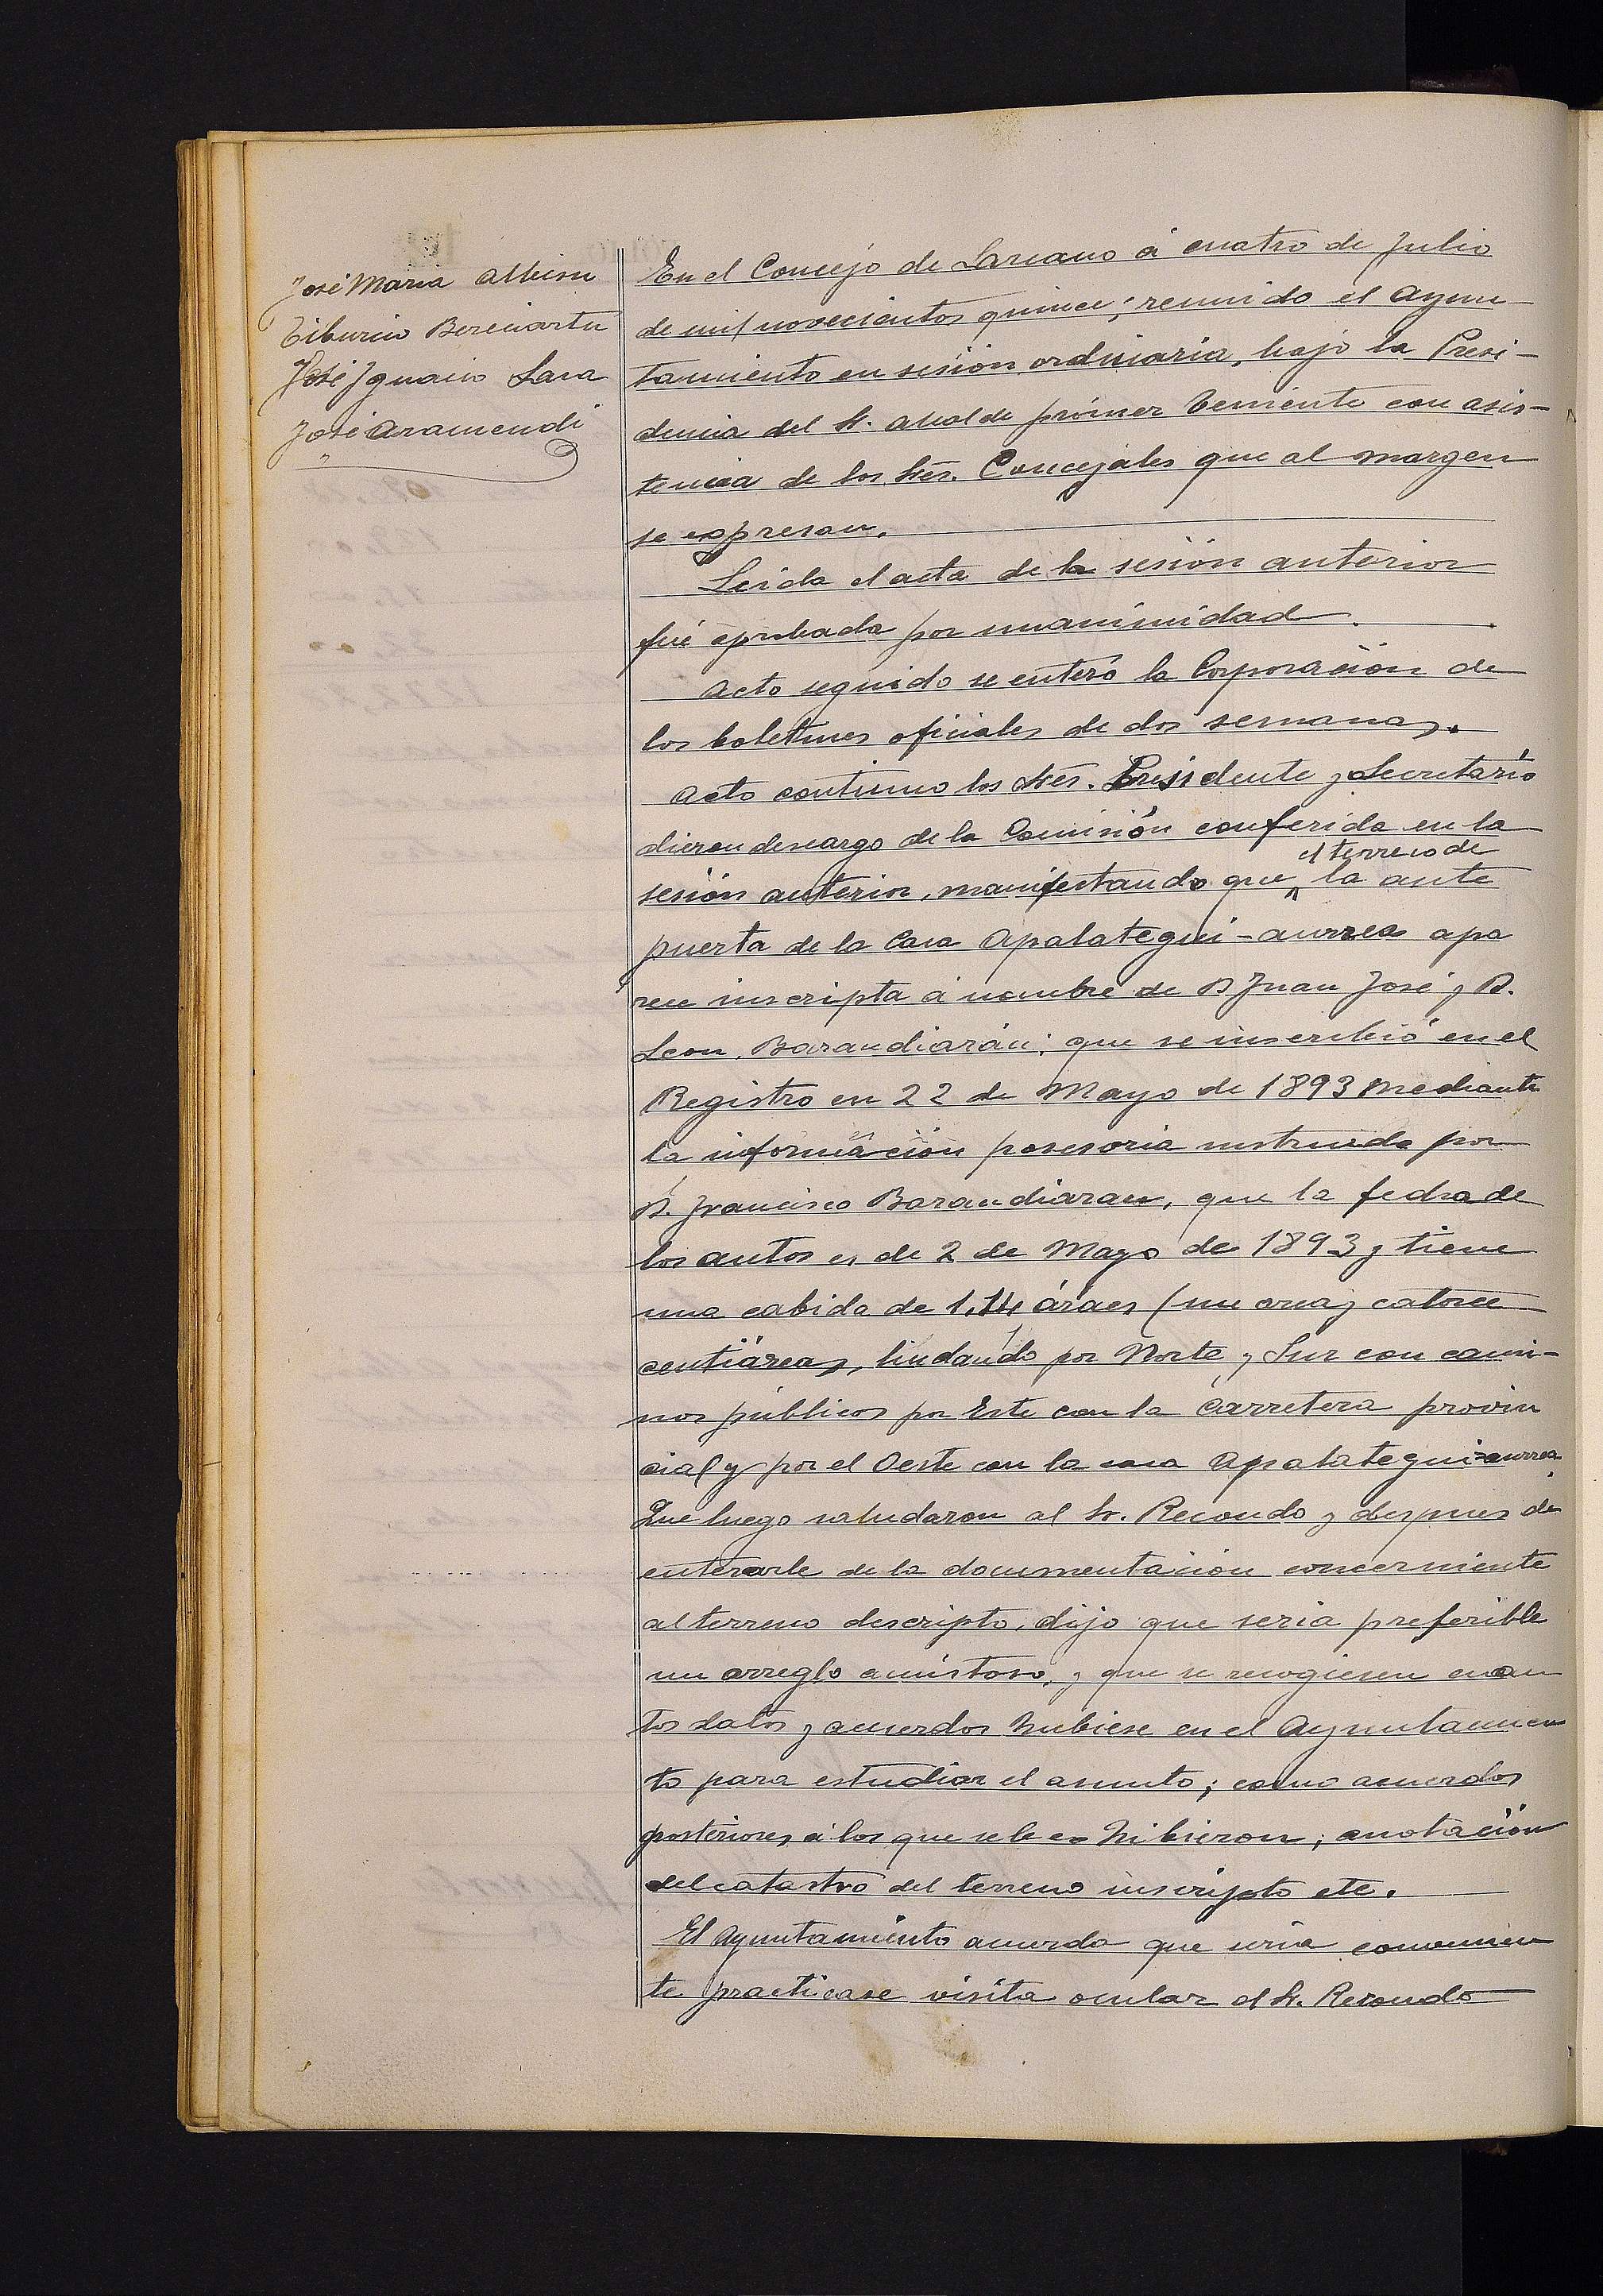 José Maria Albisu
Tiburcio Bereciartu
José Ignacio Lasa
José Aramendi
En el Concejo de Lazcano á cuatro de Julio
de mil novecientos quince; reunido el Ayun-
tamiento en sesión ordinaria, bajo la Presi-
dencia del Sr. Alcalde primer Teniente con asis-
tencia de los Sres. Concejales que al margen
se expresan.
Leida el acta de la sesión anterior
fué aprobada por unanimidad.
Acto seguido se enteró la Corporación de
los boletines oficiales de dos semanas.
Acto continuo los Sres. Presidente y Secretario
dieron descargo de la Comisión conferida en la
sesión anterior, manifestando que el terreno de la ante
puerta de la Casa Apalategui-aurrea apa
rece inscripta á nombre de D. Juan José y D.
Leon Barandiarán; que se inscribió en el
Registro en 22 de Mayo de 1893 mediante
la información posesoria instruida por
D. Francisco Barandiaran, que la fecha de
los autos es de 2 de Mayo de 1893 y tiene
una cabida de 1,14 áraes (una area y catorce
centiáreas, lindando por Norte y Sur con cami-
nos públicos por Este con la carretera provin
cial y por el Oeste con la casa Apalategui=aurrea.
Que luego saludaron al Sr. Recondo y despues de
enterarle de la documentación concerniente
al terreno descripto, dijo que seria preferible
un arreglo amistoso, y que se recogiesen cuan
tos datos y acuerdos hubiese en el Ayuntamien
to para estudiar el asunto; como acuerdos
posteriores á los que se le exhibieron; anotación
del catastro del terreno inscripto etc.
El Ayuntamiento acuerda que seria convenien
te practicase visita ocular el Sr. Recondo